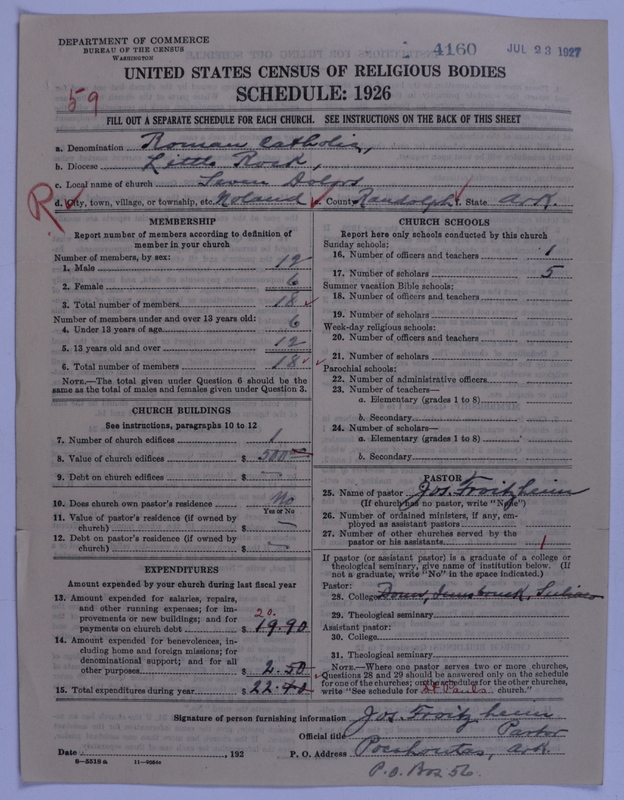 DEPARTMENT OF COMMERCE
BUREAU OF THE CENSUS
WASHINGTON
4160 JUL 23 1927
UNITED STATES CENSUS OF RELIGIOUS BODIES
SCHEDULE: 1926
59
FILL OUT A SEPARATE SCHEDULE FOR EACH CHURCH. SEE INSTRUCTIONS ON THE BACK OF THIS SHEET
a. Denomination Roman Catholic,
b. Diocese Little Rock,
c. Local name of church Seven Dolors
R d. City, town, village, or township, etc. Noland e. County Randolph f. State Ark.
MEMBERSHIP
Report number of members according to definition of
member in your church
Number of members, by sex:
1. Male 12
2. Female 6
3. Total number of members 18
Number of members under and over 13 years old:
4. Under 13 years of age 6
5. 13 years old and over 12
6. Total number of members 18
NOTE.—The total given under Question 6 should be the
same as the total of males and females given under Question 3.
CHURCH BUILDINGS
See instructions, paragraphs 10 to 12
7. Number of church edifices 1
8. Value of church edifices $ 500
9. Debt on church edifices $
10. Does church own pastor's residence No
Yes or No
11. Value of pastor's residence (if owned by
church) $
12. Debt on pastor's residence (if owned by
church) $
EXPENDITURES
Amount expended by your church during last fiscal year
13. Amount expended for salaries, repairs,
and other running expenses; for im-
provements or new buildings; and for 20.
payments on church debt $ 19.90
14. Amount expended for benevolences, in-
cluding home and foreign missions; for
denominational support; and for all
other purposes $ 2.50
15. Total expenditures during year $ 22.40
CHURCH SCHOOLS
Report here only schools conducted by this church
Sunday schools:
16. Number of officers and teachers 1
17. Number of scholars 5
Summer vacation Bible schools:
18. Number of officers and teachers
19. Number of scholars
Week-day religious schools:
20. Number of officers and teachers
21. Number of scholars
Parochial schools:
22. Number of administrative officers
23. Number of teachers—
a. Elementary (grades 1 to 8)
b. Secondary
24. Number of scholars—
a. Elementary (grades 1 to 8)
b. Secondary
PASTOR
25. Name of pastor Jos. Froitzheim
(If church has no pastor, write "None")
26. Number of ordained ministers, if any, em-
ployed as assistant pastors
27. Number of other churches served by the
pastor or his assistants 1
If pastor (or assistant pastor) is a graduate of a college or
theological seminary, give name of institution below. (If
not a graduate, write "No" in the space indicated.)
Pastor:
28. College
29. Theological seminary
Assistant pastor:
30. College
31. Theological seminary
NOTE.—Where one pastor serves two or more churches,
Questions 28 and 29 should be answered only on the schedule
for one of the churches; on the schedules for the other churches,
write "See schedule for St Pauls church."
Signature of person furnishing information Jos. Froitzheim
Official title Pastor
Date , 192 P. O. Address Pocahontas, Ark.
P.O. Box 56.